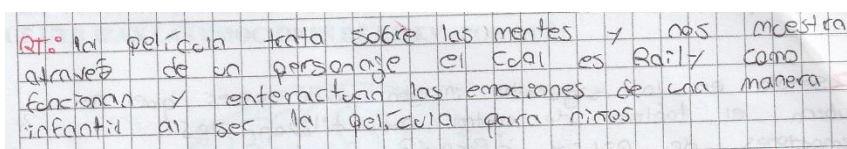 RT: la película trata sobre las mentes y nos mcestra
atraves de un personaje el cual es Raily como
funcionan y enteractuan las emociones de una manera
infantil al ser la película para niños